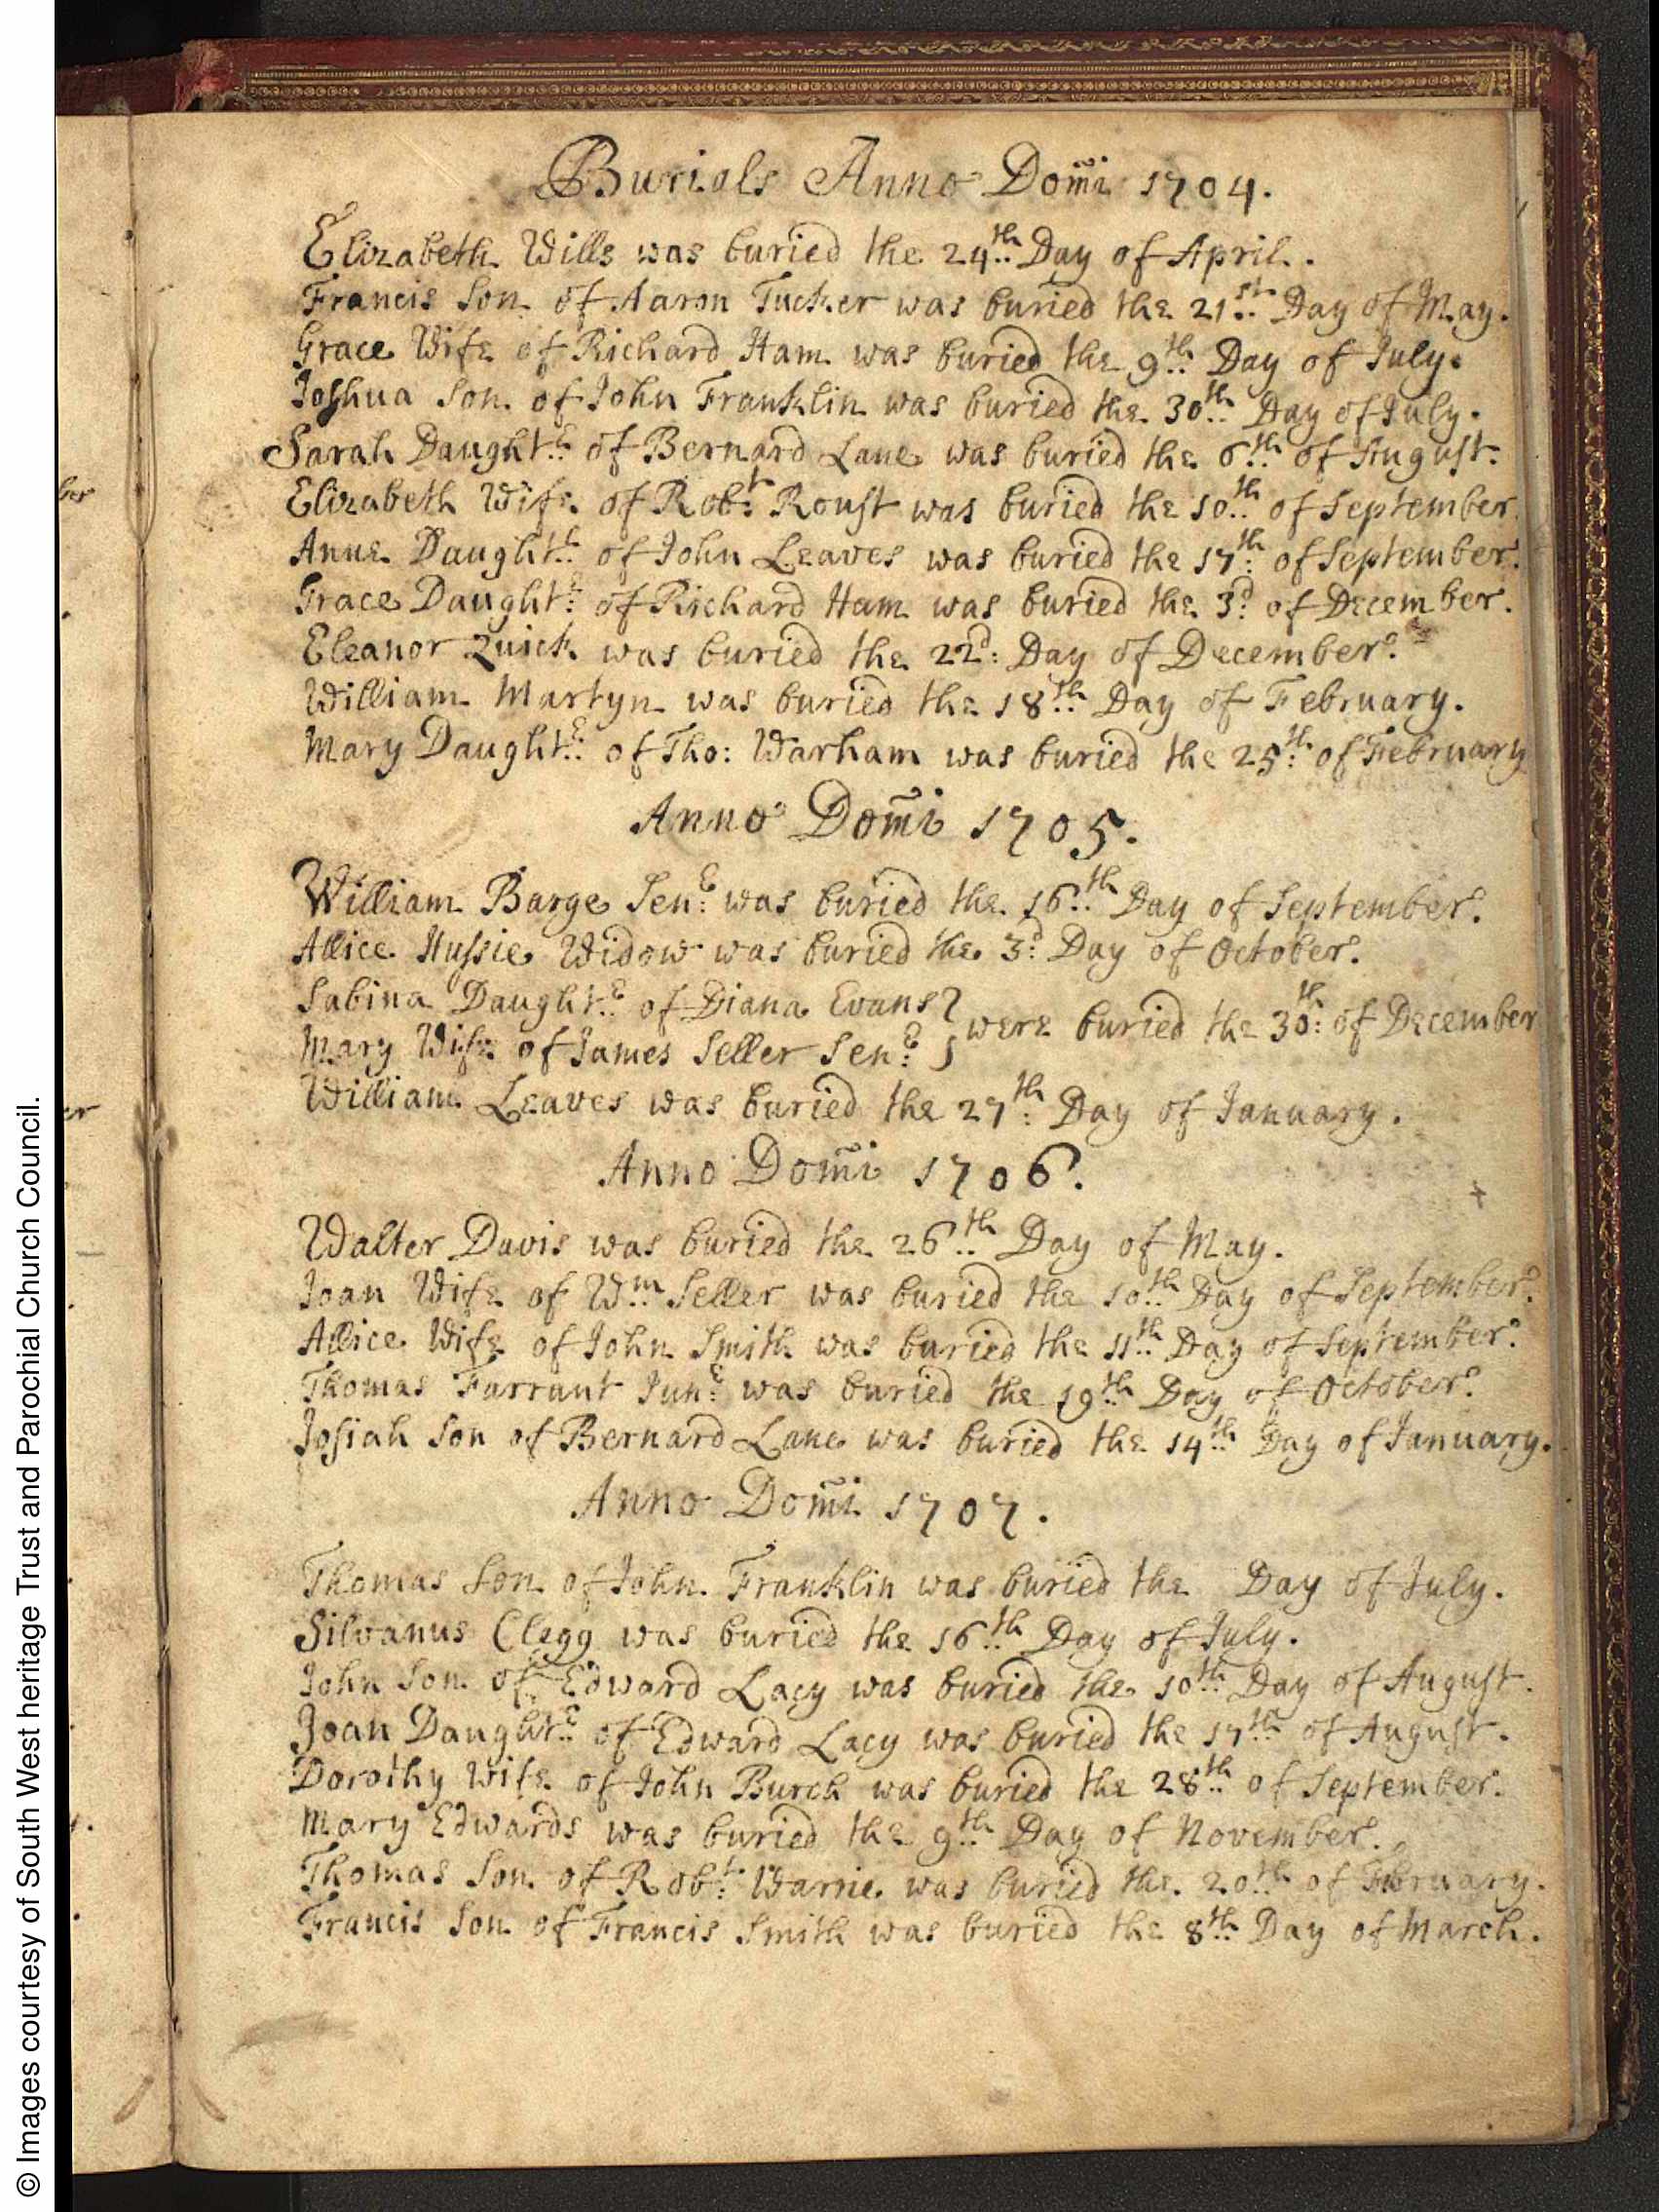 Burials Anno Dom̃i 1704.
Elizabeth Wills was buried the 24th Day of April.
Francis Son of Aaron Tucker was buried the 21st Day of May.
Grace Wife of Richard Ham was buried the 9th Day of July.
Joshua Son of John Franklin was buried the 30th Day of July.
Sarah Daughtr of Bernard Lane was buried the 6th of August.
Elizabeth Wife of Robt Roust was buried the 10th of September.
Anne Daughtr of John Leaves was buried the 17th of September.
Grace Daughtr of Richard Ham was buried the 3d of December.
Eleanor Quick was buried the 22d: Day of December.
William Martyn was buried the 18th Day of February.
Mary Daughtr of Tho: Warham was buried the 25th of February
Anno Dom̃i 1705.
William Barge Senr was buried the 16th Day of September.
Allice Hussie Widow was buried the 3d Day of October.
Sabina Daughtr of Diana Evans }
Mary Wife of James Seller Senr } were buried the 30th of December
William Leaves was buried the 27th Day of January.
Anno Dom̃i 1706.
Walter Davis was buried the 26th Day of May.
Joan Wife of Wm Seller was buried the 10th Day of September.
Allice Wife of John Smith was buried the 11th Day of September.
Thomas Farrant Junr was buried the 19th Day of October.
Josiah Son of Bernard Lane was buried the 14th Day of January.
Anno Dom̃i 1707.
Thomas Son of John Franklin was buried the Day of July.
Silvanus Clegg was buried the 16th Day of July.
John Son of Edward Lacy was buried the 10th Day of August.
Joan Daughtr of Edward Lacy was buried the 17th of August.
Dorothy Wife of John Burch was buried the 28th of September.
Mary Edwards was buried the 9th Day of November.
Thomas Son of Robt Warrie was buried the 20th of February.
Francis Son of Francis Smith was buried the 8th Day of March.
© Images courtesy of South West heritage Trust and Parochial Church Council.